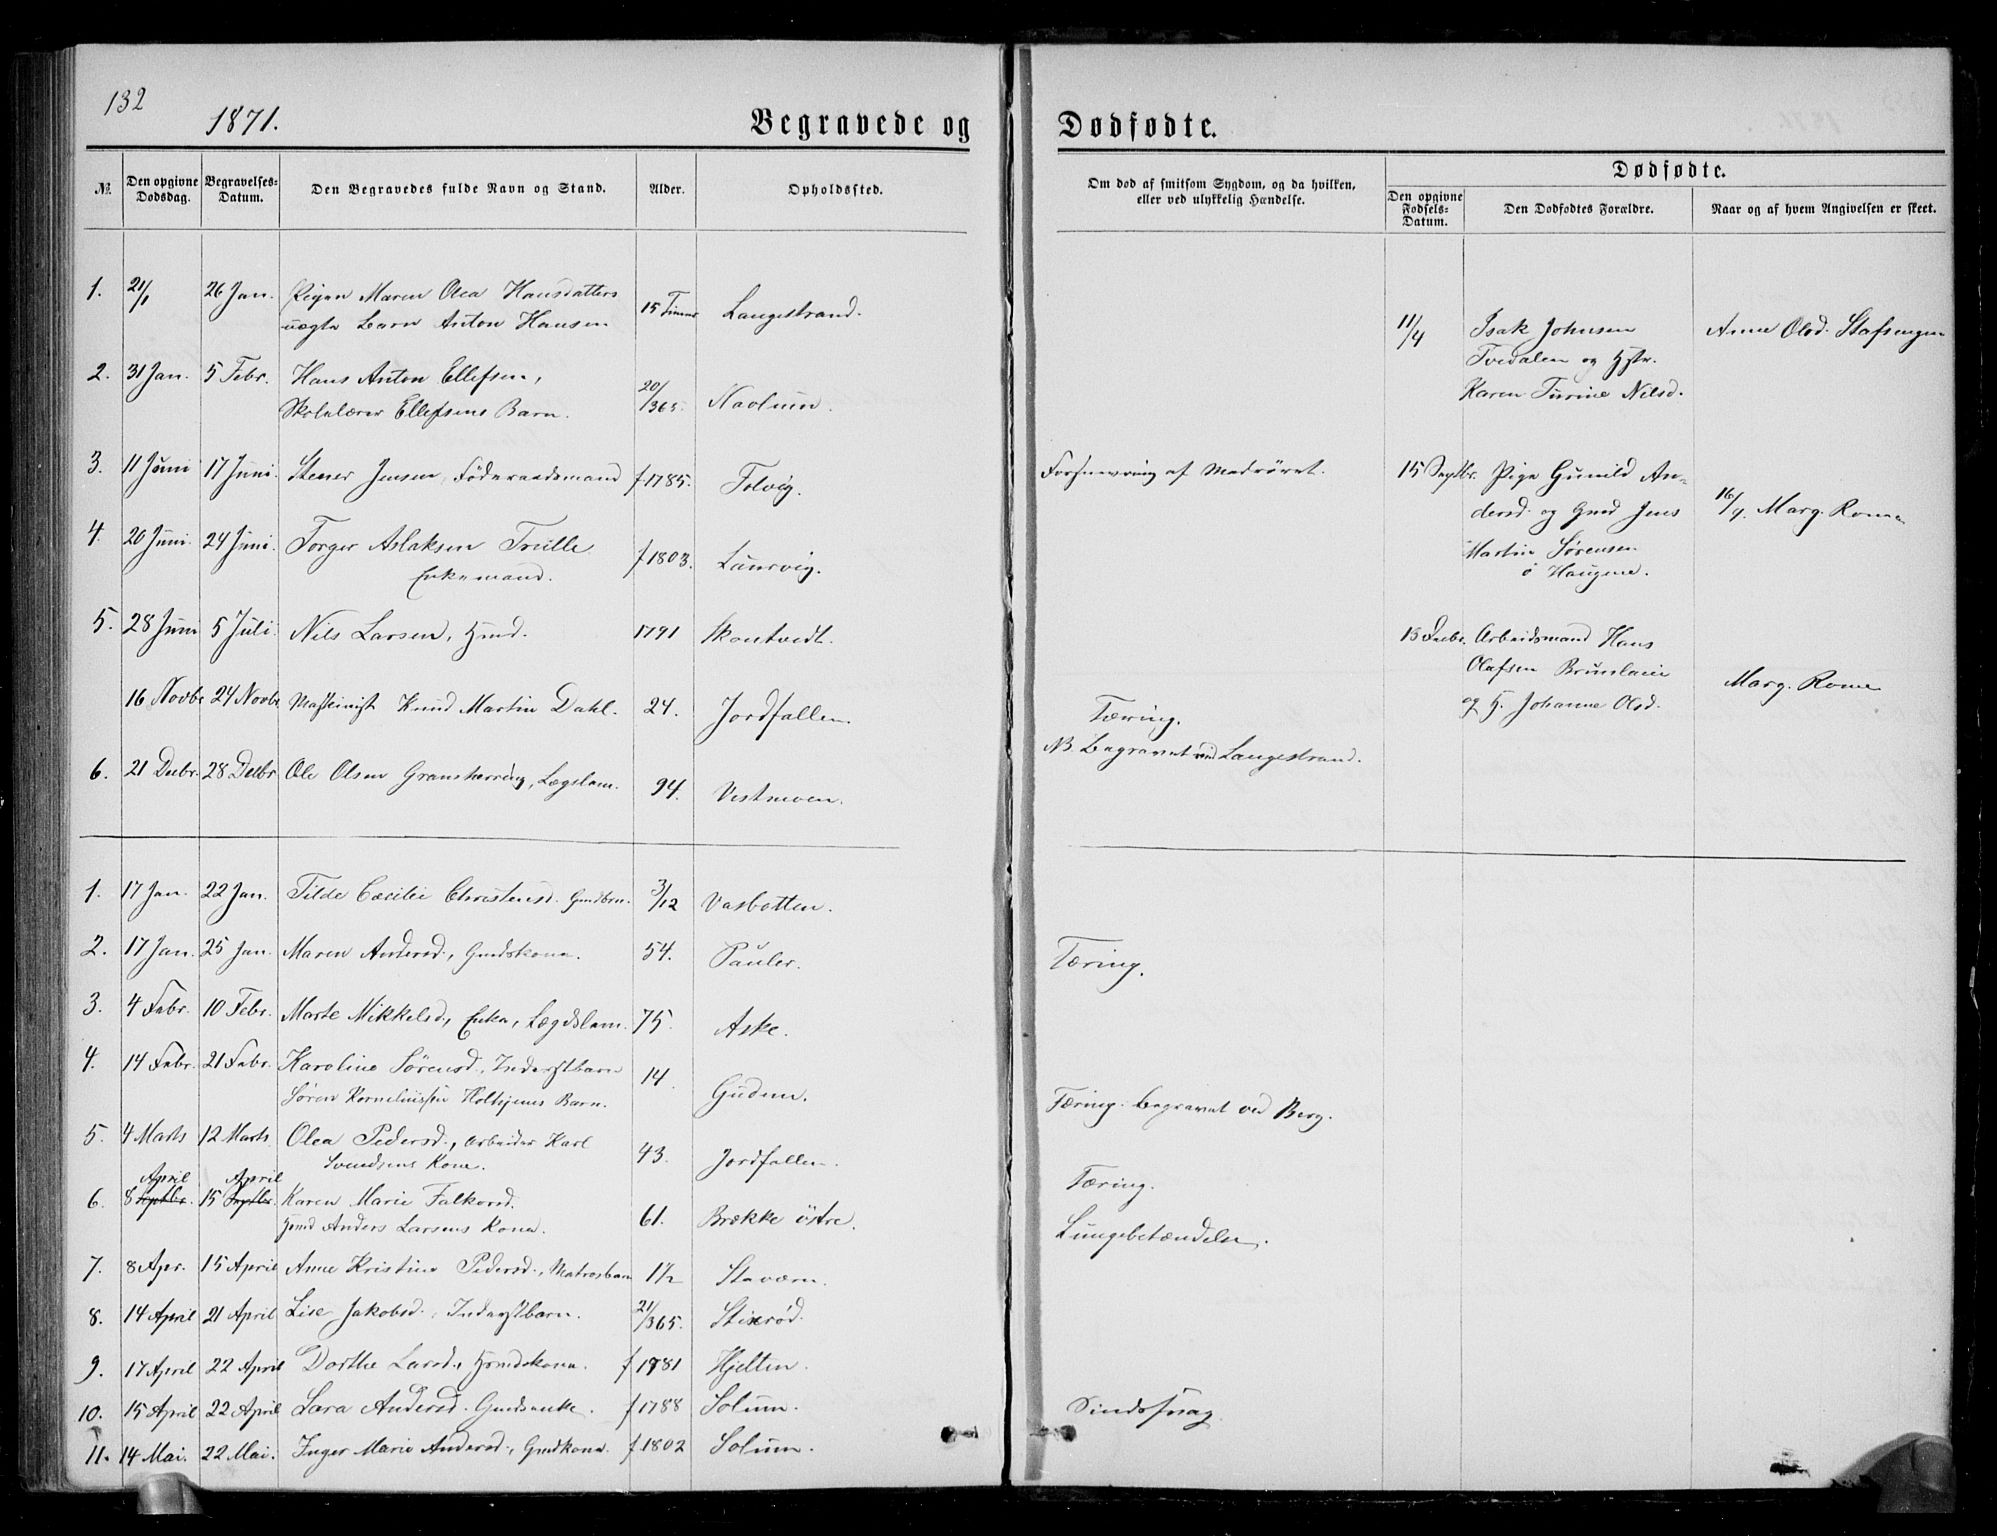 132
1871.
Begravede og
Dødfødte.
№
Den opgivne Dødsdag.
Begravelses-Datum.
Den Begravedes fulde Navn og Stand.
Alder.
Opholdssted.
Om død af smitsom Sygdom, og da hvilken, eller ved ulykkelig Hændelse.
Dødfødte.
Den opgivne Fødsels-Datum.
Den Dødfødtes Forældre.
Naar og af hvem Angivelsen er skeet.
1. 21/1 26 Jan. Pigen Maren Olea Hansdatters 15 Timer Langestrand.
uægte Barn Anton Hansen
2. 31 Jan. 5 Febr. Hans Anton Ellefsen, 20/365. Navlum.
Skolelærer Ellefsens Barn.
3. 11 Juni 17 Juni. Stener Jensen, Føderaadsmand f 1785. Tolvig.
4. 20 Juni. 24 Juni. Torger Aslaksen Treille f 1803. Laurvig.
Enkemand.
5. 28 Juni 5 Juli. Nils Larsen, Hmd. 1791 Skontvedt.
16 Novbr 24 Novbr Maskinist Knud Martin Dahl. 24. Jordfallen.
6. 21 Decbr. 28 Decbr Ole Olsen Gransherring, Lægslem. 94. Vestmoen.
1. 17 Jan. 22 Jan. Tilde Cæcilie Christensd. Gmdbrn. 3/12 Vasbotten.
2. 17 Jan. 25 Jan. Maren Andersd., Gmdskone. 54. Pauler.
3. 4 Febr. 10 Febr. Marte Mikkelsd., Enke, Lægdslem. 75. Aske.
4. 14 Febr. 21 Febr. Karoline Sørensd., Inderstbarn 14. Gudem.
Søren Korneliussen Holhjems Barn.
5. 4 Marts 12 Marts Olea Pedersd., Arbeider Karl 43. Jordfallen.
Svendsens Kone.
April April
6. 8 Septbr. 15 Septbr. Karen Marie Falkorsd. 61. Brække østre.
Hmd Anders Larsens Kone.
7. 8 Apr. 15 April Anne Kristine Pedersd., Matrosbarn 1½ Staværn.
8. 14 April 21 April Lise Jakobsd. Inderstbarn. 21/365. Stixrød.
9. 17 April 22 April Dorthe Larsd., Hmdskone. f 1781 Hjelten.
10. 15 April 22 April Sara Andersd. Gmdsenke. f 1788 Solum.
11. 14 Mai. 22 Mai. Inger Marie Andersd., Gmdkone. f 1802 Solum.
11/4 Isak Johnsen Anne Olsd. Stafsengen
Tvedalen og Hstr.
Karen Turine Nilsd.
Forsnevring af Madrøret. 15 Septbr. Pige Gunild An-
dersd. og Gmd Jens 16/9. Marg. Rome
Martin Sørensen
ø Haugene.
13 Decbr. Arbeidsmand Hans
Olafsen Brunlanie Marg. Rome
og H. Johanne Olsd.
Tæring.
NB. Begravet ved Langestrand.
Tæring.
Tæring. Begravet ved Berg.
Tæring.
Lungebetændelse.
Sindssvag.